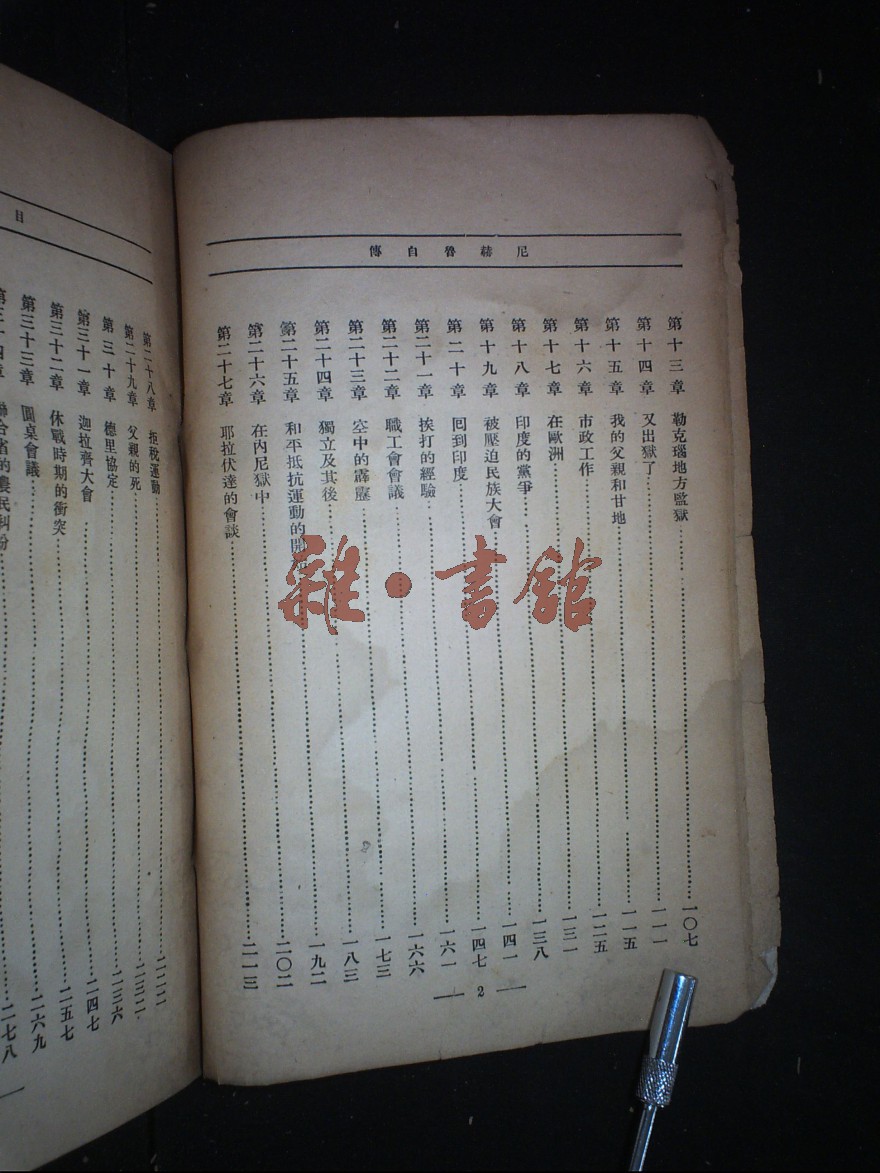 尼赫魯自傳
第十三章 勒克瑙地方監獄……一〇七
第十四章 又出獄了……一一一
第十五章 我的父親和甘地……一一五
第十六章 市政工作……一二五
第十七章 在歐洲……一三一
第十八章 印度的黨爭……一三八
第十九章 被壓迫民族大會……一四一
第二十章 回到印度……一四七
第二十一章 挨打的經驗……一六一
第二十二章 職工會會議……一六六
第二十三章 空中的霹靂……一七三
第二十四章 獨立及其後……一八三
第二十五章 和平抵抗運動的開……一九二
第二十六章 在內尼獄中……二〇二
第二十七章 耶拉伏達的會談……二一三
— 2 —
目
第二十八章 拒稅運動……二二二
第二十九章 父親的死……二三二
第三十章 德里協定……二三六
第三十一章 迦拉齊大會……二四七
第三十二章 休戰時期的衝突……二五七
第三十三章 圓桌會議……二六九
第三十四章 聯合省的農民糾紛……二七八
雜·書館